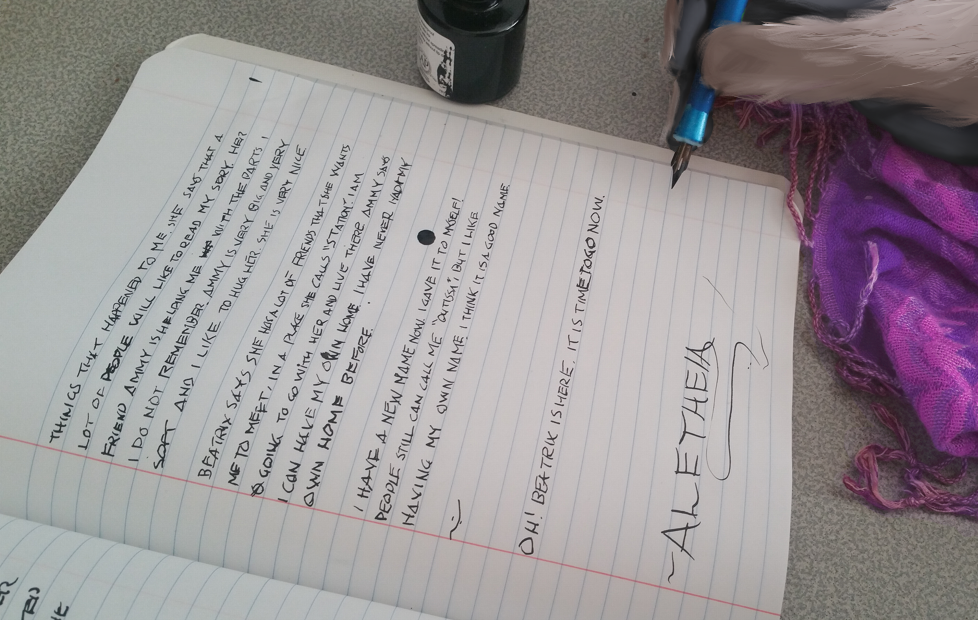 THINGS THAT HAPPENED TO ME. SHE SAYS THAT A
LOT OF PEOPLE WILL LIKE TO READ MY STORY. HER
FRIEND AMMY IS HELPING ME WITH THE PARTS I
I DO NOT REMEMBER. AMMY IS VERY BIG AND VERY
SOFT AND I LIKE TO HUG HER. SHE IS VERY NICE
BEATRIX SAYS SHE HAS A LOT OF FRIENDS THAT SHE WANTS
ME TO MEET, IN A PLACE SHE CALLS "STATION". I AM
GOING TO GO WITH HER AND LIVE THERE. AMMY SAYS
I CAN HAVE MY OWN HOME. I HAVE NEVER HAD MY
OWN HOME BEFORE.
I HAVE A NEW NAME NOW. I GAVE IT TO MYSELF!
PEOPLE STILL CAN CALL ME "OUTISSA", BUT I LIKE
HAVING MY OWN NAME. I THINK IT IS A GOOD NAME.
~
OH! BEATRIX IS HERE. IT IS TIME TO GO NOW.
~ALETHEIA